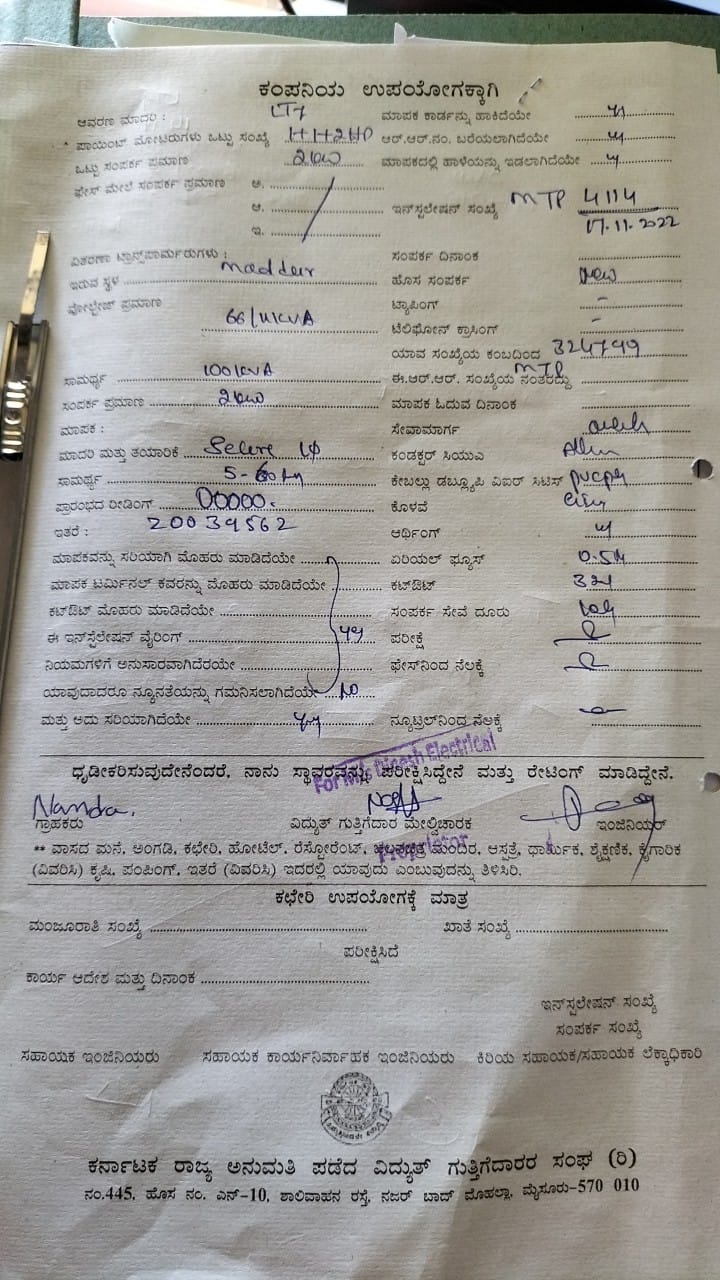 ಕಂಪನಿಯ ಉಪಯೋಗಕ್ಕಾಗಿ
ಆವರಣ ಮಾದರಿ : LT7 ಮಾಪಕ ಕಾರ್ಡನ್ನು ಹಾಕಿದೆಯೇ
ಪಾಯಿಂಟ್ ಮೋಟರುಗಳು ಒಟ್ಟು ಸಂಖ್ಯೆ ಆರ್.ಆರ್.ನಂ. ಬರೆಯಲಾಗಿದೆಯೇ
ಒಟ್ಟು ಸಂಪರ್ಕ ಪ್ರಮಾಣ 2kw ಮಾಪಕದಲ್ಲಿ ಹಾಳೆಯನ್ನು ಇಡಲಾಗಿದೆಯೇ
ಫೇಸ್ ಮೇಲೆ ಸಂಪರ್ಕ ಪ್ರಮಾಣ ಅ.
ಆ. ಇನ್‌ಸ್ಟಲೇಷನ್ ಸಂಖ್ಯೆ MTP 4114
ಇ. 17.11.2022
ವಿತರಣಾ ಟ್ರಾನ್ಸ್‌ಪಾರ್ಮರುಗಳು : ಸಂಪರ್ಕ ದಿನಾಂಕ
ಇರುವ ಸ್ಥಳ maddur ಹೊಸ ಸಂಪರ್ಕ new
ವೋಲ್ಟೇಜ್ ಪ್ರಮಾಣ ಟ್ಯಾಪಿಂಗ್ -
66/11KVA ಟೆಲಿಫೋನ್ ಕ್ರಾಸಿಂಗ್ -
ಯಾವ ಸಂಖ್ಯೆಯ ಕಂಬದಿಂದ 324799
ಸಾಮರ್ಥ್ಯ 100KVA ಈ.ಆರ್.ಆರ್. ಸಂಖ್ಯೆಯ ನಂತರದ್ದು MTP
ಸಂಪರ್ಕ ಪ್ರಮಾಣ 2kw ಮಾಪಕ ಓದುವ ದಿನಾಂಕ
ಮಾಪಕ : ಸೇವಾಮಾರ್ಗ
ಮಾದರಿ ಮತ್ತು ತಯಾರಿಕೆ ಕಂಡಕ್ಟರ್ ಸಿಯುಎ
ಸಾಮರ್ಥ್ಯ ಕೇಬಲ್ಲು ಡಬ್ಲ್ಯೂಪಿ ವಿಐರ್ ಸಿಟಿಸ್
ಪ್ರಾರಂಭದ ರೀಡಿಂಗ್ 00000. ಕೊಳವೆ
ಇತರೆ : 20039562 ಆರ್ಥಿಂಗ್
ಮಾಪಕವನ್ನು ಸರಿಯಾಗಿ ಮೊಹರು ಮಾಡಿದೆಯೇ ಏರಿಯಲ್ ಫ್ಯೂಸ್
ಮಾಪಕ ಟರ್ಮಿನಲ್ ಕವರನ್ನು ಮೊಹರು ಮಾಡಿದೆಯೇ ಕಟ್‌ಔಟ್
ಕಟ್‌ಔಟ್ ಮೊಹರು ಮಾಡಿದೆಯೇ ಸಂಪರ್ಕ ಸೇವೆ ದೂರು
ಈ ಇನ್‌ಸ್ಟಲೇಷನ್ ವೈರಿಂಗ್ ಪರೀಕ್ಷೆ
ನಿಯಮಗಳಿಗೆ ಅನುಸಾರವಾಗಿದೆರೆಯೇ ಫೇಸ್‌ನಿಂದ ನೆಲಕ್ಕೆ
ಯಾವುದಾದರೂ ನ್ಯೂನತೆಯನ್ನು ಗಮನಿಸಲಾಗಿದೆಯೇ No
ಮತ್ತು ಅದು ಸರಿಯಾಗಿದೆಯೇ ನ್ಯೂಟ್ರಲ್‌ನಿಂದ ನೆಲಕ್ಕೆ
For M/s Dinesh Electrical
ಧೃಡೀಕರಿಸುವುದೇನೆಂದರೆ, ನಾನು ಸ್ಥಾವರವನ್ನು ಪರೀಕ್ಷಿಸಿದ್ದೇನೆ ಮತ್ತು ರೇಟಿಂಗ್ ಮಾಡಿದ್ದೇನೆ.
Nanda.
ಗ್ರಾಹಕರು ವಿದ್ಯುತ್ ಗುತ್ತಿಗೆದಾರ ಮೇಲ್ವಿಚಾರಕ ಇಂಜಿನಿಯರ್
Proprietor
** ವಾಸದ ಮನೆ, ಅಂಗಡಿ, ಕಛೇರಿ, ಹೋಟೆಲ್, ರೆಸ್ಟೋರೆಂಟ್, ಚಲನಚಿತ್ರ ಮಂದಿರ, ಆಸ್ಪತ್ರೆ, ಧಾರ್ಮಿಕ, ಶೈಕ್ಷಣಿಕ, ಕೈಗಾರಿಕ
(ವಿವರಿಸಿ) ಕೃಷಿ, ಪಂಪಿಂಗ್, ಇತರೆ (ವಿವರಿಸಿ) ಇದರಲ್ಲಿ ಯಾವುದು ಎಂಬುವುದನ್ನು ತಿಳಿಸಿರಿ.
ಕಛೇರಿ ಉಪಯೋಗಕ್ಕೆ ಮಾತ್ರ
ಮಂಜೂರಾತಿ ಸಂಖ್ಯೆ ಖಾತೆ ಸಂಖ್ಯೆ
ಪರೀಕ್ಷಿಸಿದೆ
ಕಾರ್ಯ ಆದೇಶ ಮತ್ತು ದಿನಾಂಕ
ಇನ್‌ಸ್ಟಲೇಷನ್ ಸಂಖ್ಯೆ
ಸಂಪರ್ಕ ಸಂಖ್ಯೆ
ಸಹಾಯಕ ಇಂಜಿನಿಯರು ಸಹಾಯಕ ಕಾರ್ಯನಿರ್ವಾಹಕ ಇಂಜಿನಿಯರು ಕಿರಿಯ ಸಹಾಯಕ/ಸಹಾಯಕ ಲೆಕ್ಕಾಧಿಕಾರಿ
ಕರ್ನಾಟಕ ರಾಜ್ಯ ಅನುಮತಿ ಪಡೆದ ವಿದ್ಯುತ್ ಗುತ್ತಿಗೆದಾರರ ಸಂಘ (ರಿ)
ನಂ.445, ಹೊಸ ನಂ. ಎನ್-10, ಶಾಲಿವಾಹನ ರಸ್ತೆ, ನಜರ್ ಬಾದ್ ಮೊಹಲ್ಲಾ, ಮೈಸೂರು-570 010